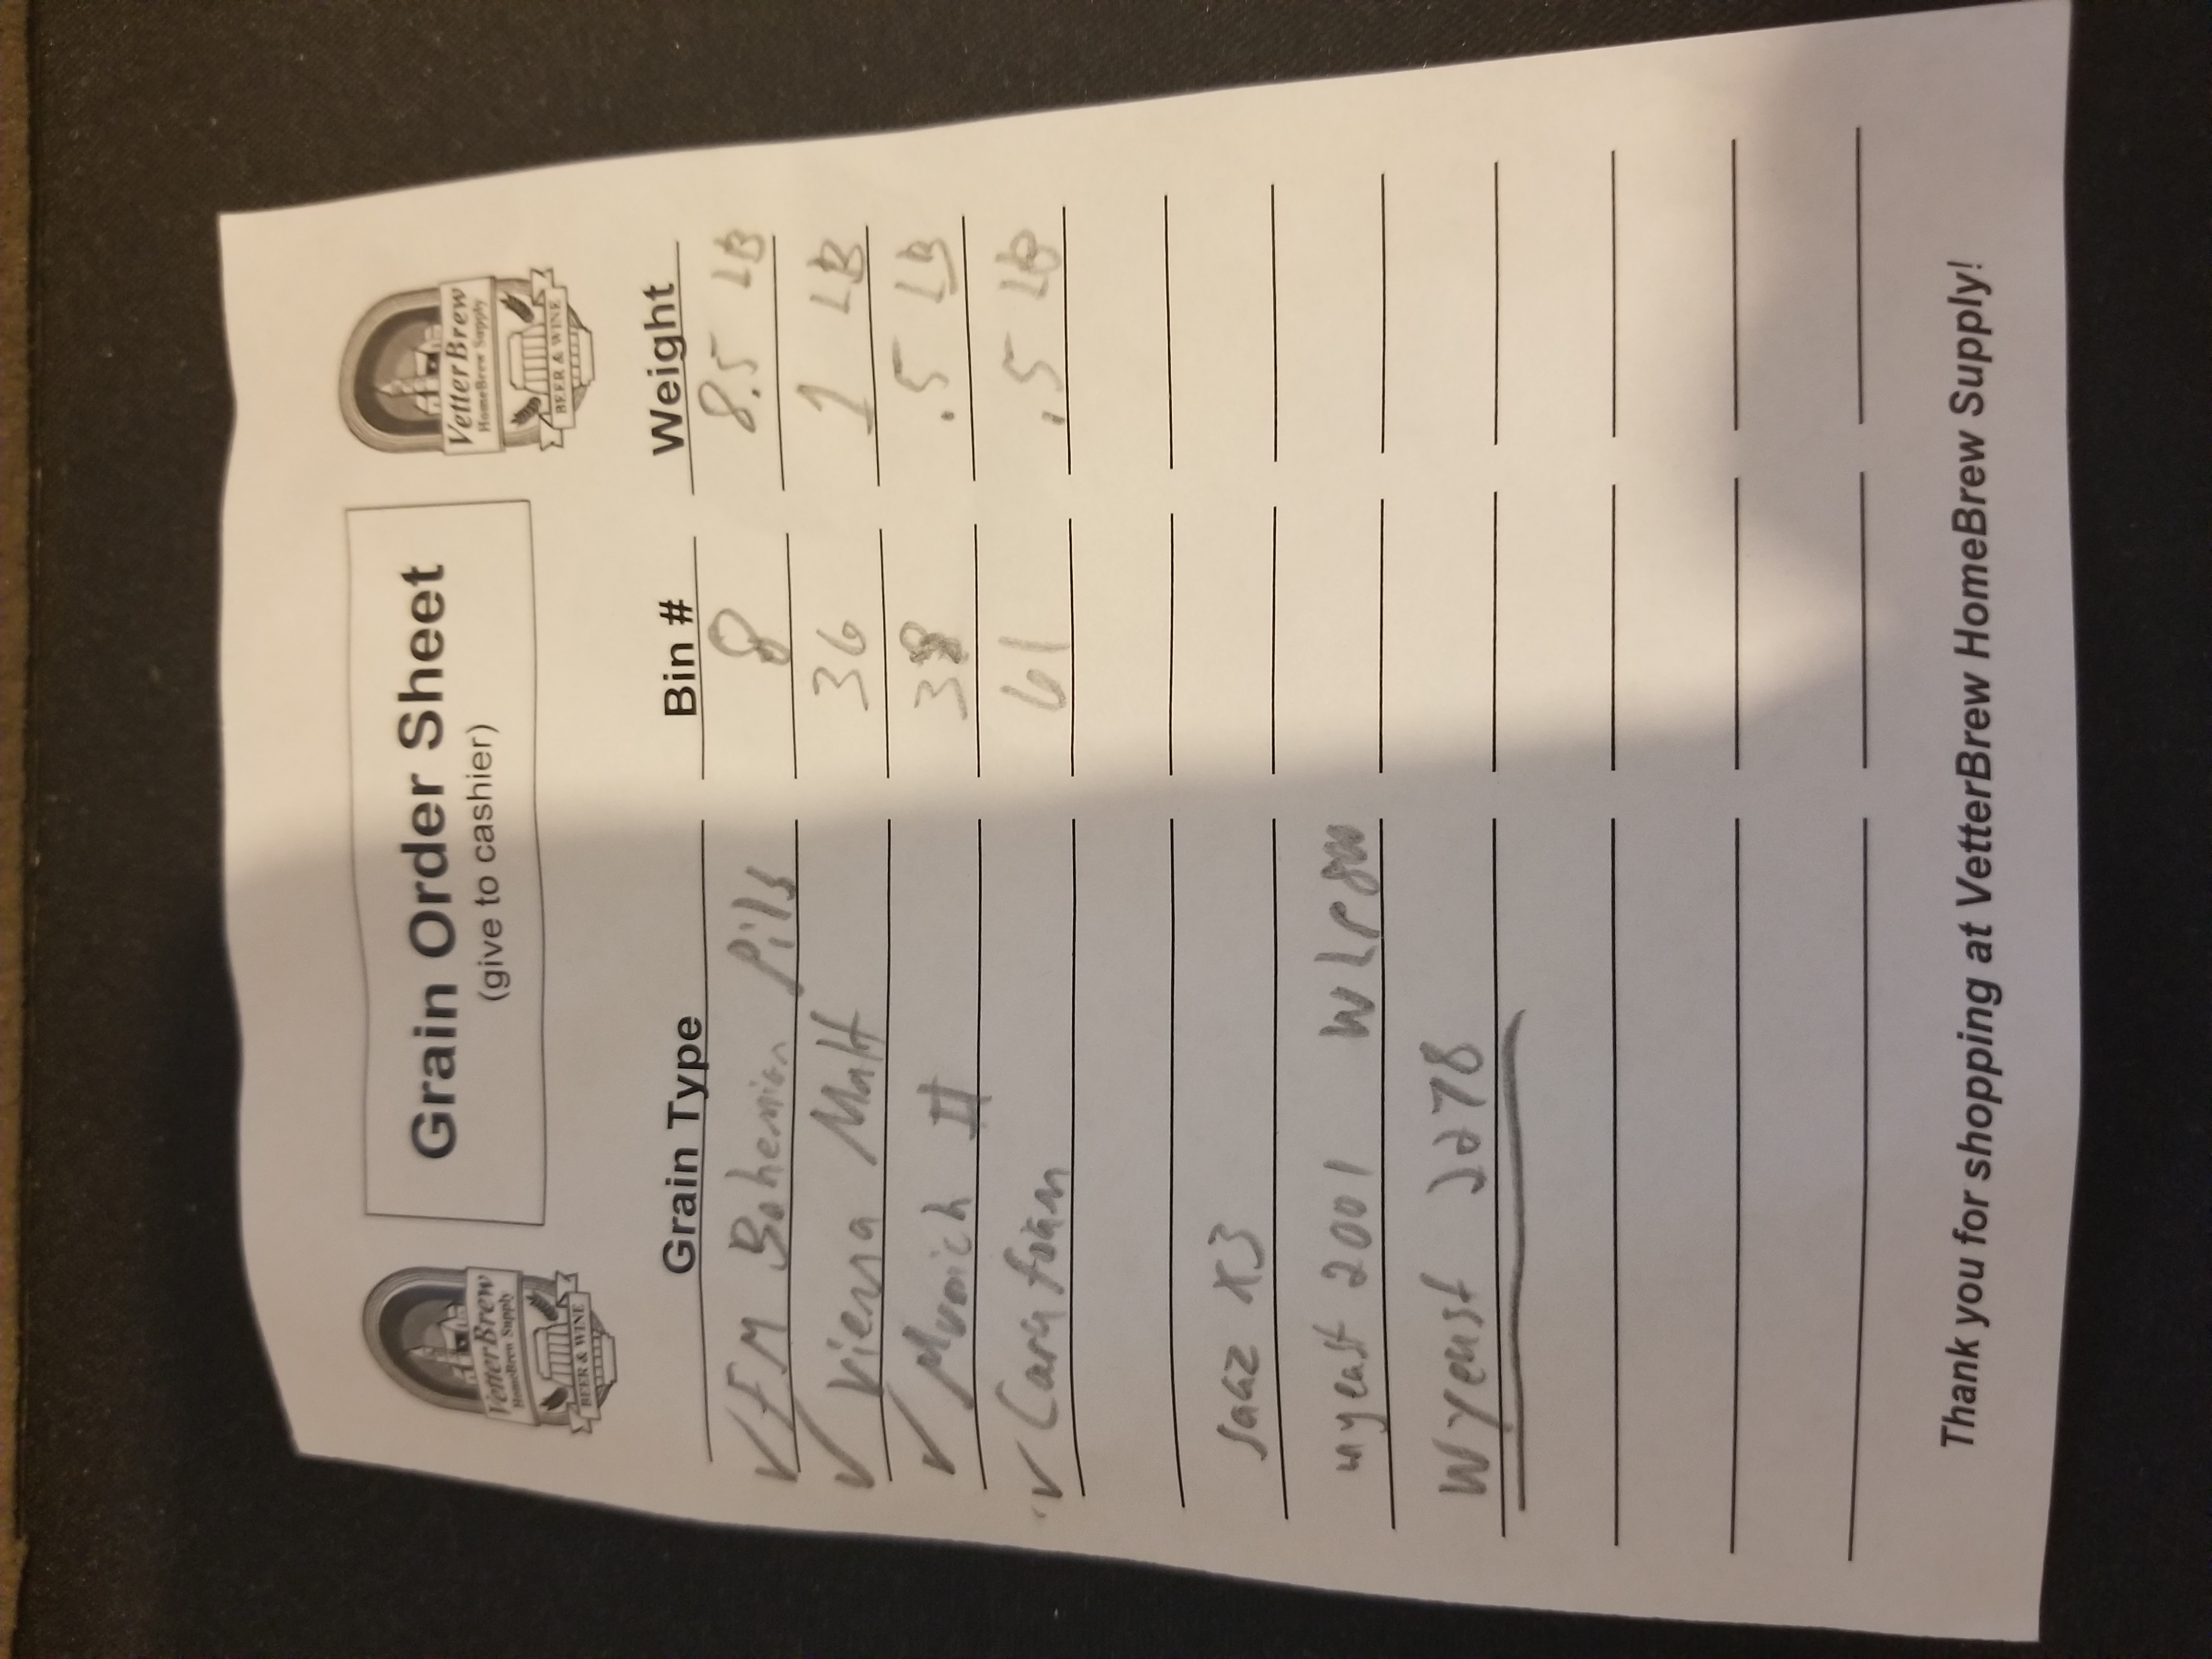 VetterBrew
HomeBrew Supply
BEER & WINE
Grain Order Sheet
(give to cashier)
VetterBrew
HomeBrew Supply
BEER & WINE
Grain Type Bin # Weight
✓ FM Bohemian Pils 8 8.5 LB
✓ Vienna Malt 36 1 LB
✓ Munich II 38 .5 LB
✓ Carafoam 61 .5 LB
Saaz X3
wyeast 2001 WLP800
Wyeast 2278
Thank you for shopping at VetterBrew HomeBrew Supply!